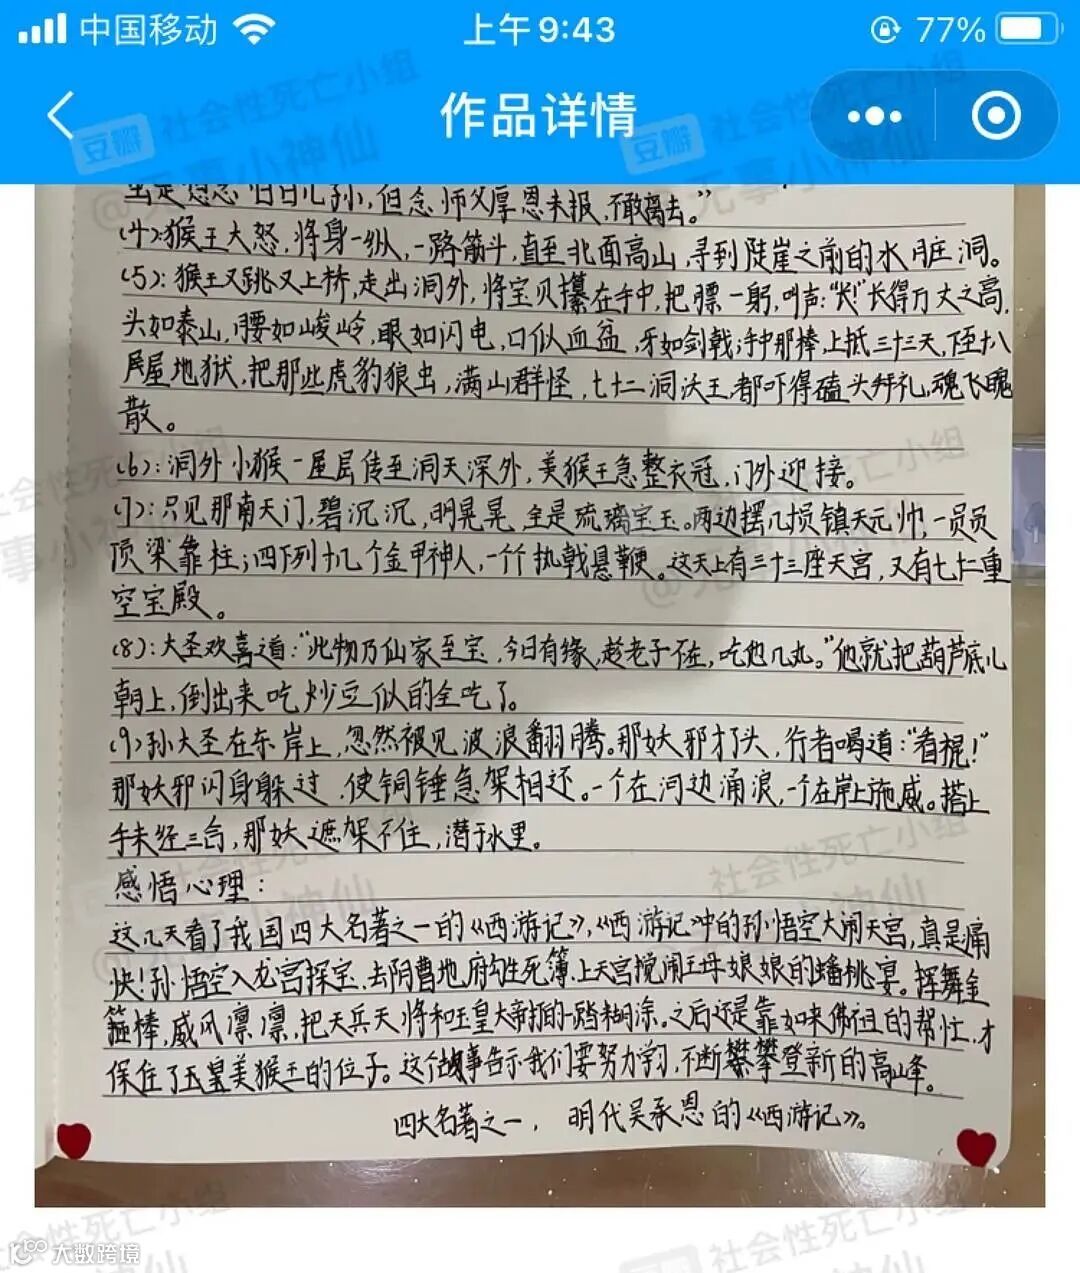 中国移动
上午 9:43
77%
作品详情
虽是想念旧日儿孙,但念师父厚恩未报,不敢离去。”
(4)猴王大怒,将身一纵,一路筋斗,直至北面高山,寻到陡崖之前的水脏洞。
(5):猴王又跳又上桥,走出洞外,将宝贝攥在手中,把腰一躬,叫声:“长!”长得万丈之高,
头如泰山,腰如峻岭,眼如闪电,口似血盆,牙如剑戟;手中那棒,上抵三十三天,下至十八
层地狱,把那些虎豹狼虫,满山群怪,七十二洞妖王,都吓得磕头拜礼,魂飞魄
散。
(6):洞外小猴一层层传至洞天深外,美猴王急整衣冠,门外迎接。
(7):只见那南天门,碧沉沉,明晃晃,全是琉璃宝玉。两边摆几损镇天元帅,一员员
顶梁靠柱;四下列十几个金甲神人,一个个执戟悬鞭。这天上有三十三座天宫,又有七十二重
空宝殿。
(8):大圣欢喜道:“此物乃仙家至宝,今日有缘,趁老子不在,吃他几丸。”他就把葫芦底儿
朝上,倒出来吃炒豆似的全吃了。
(9)孙大圣在东岸上,忽然被见波浪翻腾。那妖邪才了头,行者喝道:“看棍!”
那妖邪闪身躲过,使铜锤急架相还。一个在河边涌浪,一个在岸上施威。搭上
手未经三合,那妖遮架不住,潜于水里。
感悟心理:
这几天看了我国四大名著之一的《西游记》,《西游记》中的孙悟空大闹天宫,真是痛
快!孙悟空入龙宫探宝,去阴曹地府勾生死簿,上天宫搅闹王母娘娘的蟠桃宴。挥舞金
箍棒,威风凛凛,把天兵天将和玉皇大帝打的一踏糊涂。之后还是靠如来佛祖的帮忙,才
保住了玉皇美猴王的位子。这个故事告示我们要努力学习,不断攀攀登新的高峰。
四大名著之一,明代吴承恩的《西游记》。
豆瓣
社会性死亡小组
@无事小神仙
豆瓣
社会性死亡小组
@无事小神仙
大数跨境